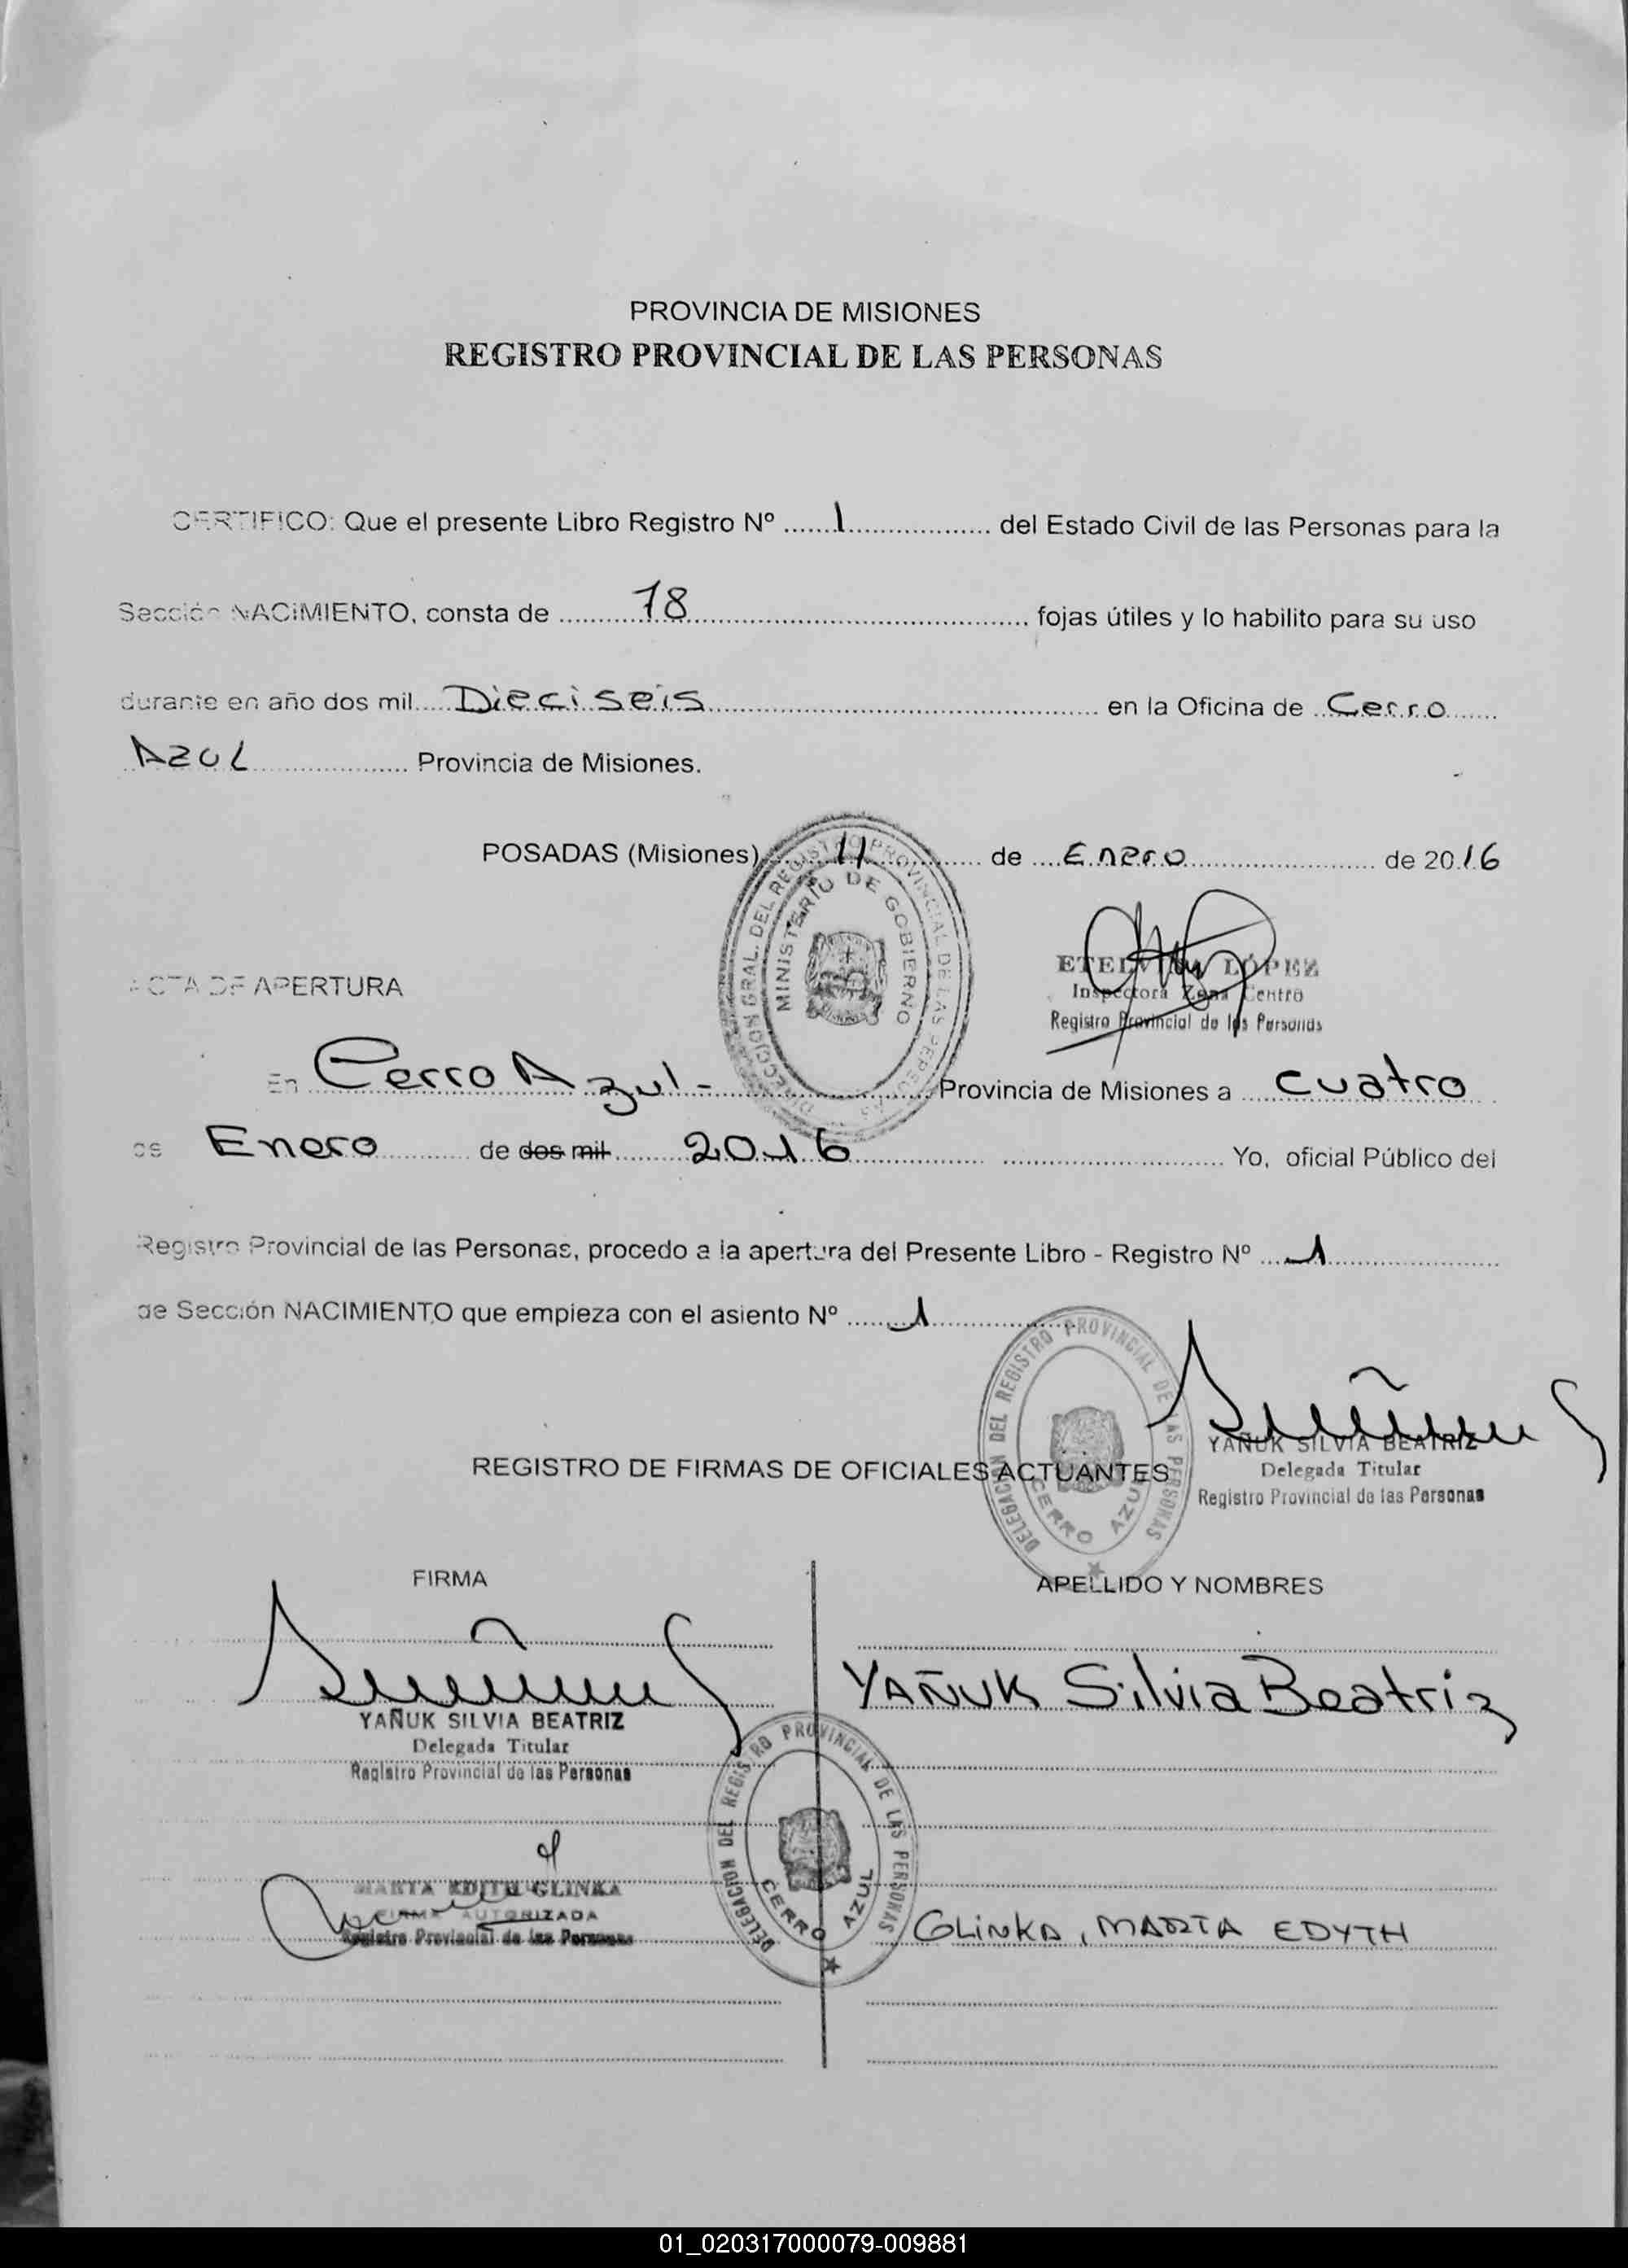 PROVINCIA DE MISIONES
REGISTRO PROVINCIAL DE LAS PERSONAS
CERTIFICO: Que el presente Libro Registro Nº ....... 1 .................. del Estado Civil de las Personas para la
Sección NACIMIENTO, consta de ........... 18 ........................................ fojas útiles y lo habilito para su uso
durante en año dos mil ..... Dieciseis ........................................ en la Oficina de ... Cerro .......
Azul .................... Provincia de Misiones.
POSADAS (Misiones), ....... 11 ............ de .... Enero ........................ de 2016
DIRECCIÓN GRAL. DEL REGISTRO PROVINCIAL DE LAS PERSONAS
MINISTERIO DE GOBIERNO
ETELVINA LÓPEZ
Inspectora Zona Centro
Registro Provincial de las Personas
ACTA DE APERTURA
En Cerro Azul - .................... Provincia de Misiones a ..... cuatro
de Enero ........... de dos mil ......... 2016 ............................................ Yo, oficial Público del
Registro Provincial de las Personas, procedo a la apertura del Presente Libro - Registro Nº ... 1 ....................
de Sección NACIMIENTO que empieza con el asiento Nº ...... 1 ..................
DELEGACIÓN DEL REGISTRO PROVINCIAL DE LAS PERSONAS
CERRO AZUL
YAÑUK SILVIA BEATRIZ
Delegada Titular
Registro Provincial de las Personas
REGISTRO DE FIRMAS DE OFICIALES ACTUANTES
FIRMA
APELLIDO Y NOMBRES
YAÑUK Silvia Beatriz
YAÑUK SILVIA BEATRIZ
Delegada Titular
Registro Provincial de las Personas
DELEGACIÓN DEL REGISTRO PROVINCIAL DE LAS PERSONAS
CERRO AZUL
MARTA EDITH GLINKA
FIRMA AUTORIZADA
Registro Provincial de las Personas
GLINKA, MARTA EDYTH
01_020317000079-009881